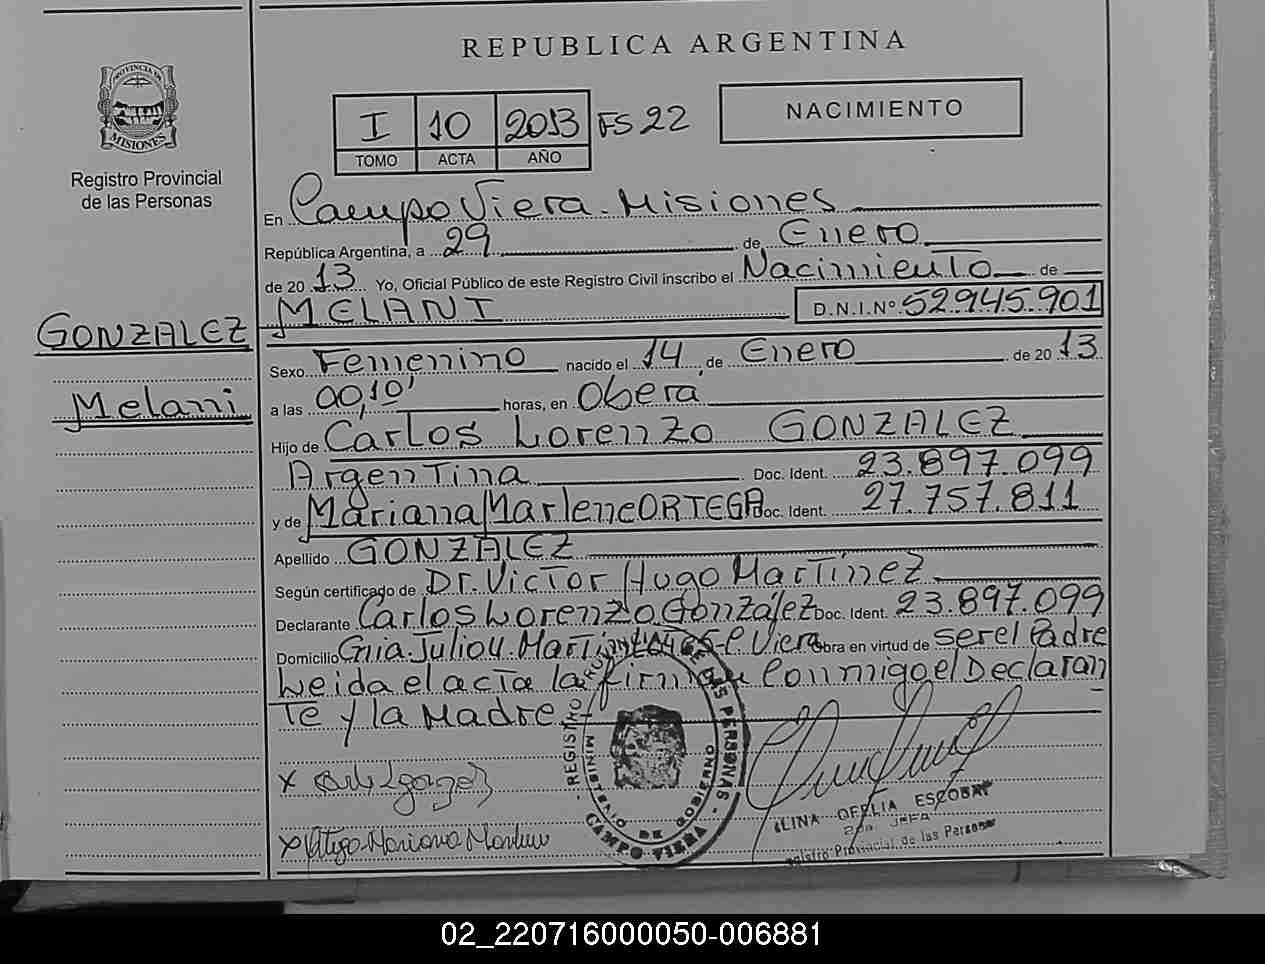 REPUBLICA ARGENTINA
PROVINCIA DE
MISIONES
Registro Provincial
de las Personas
I 10 2013 FS 22
TOMO ACTA AÑO
NACIMIENTO
En Campo Viera. Misiones
República Argentina, a 29 de Enero
de 20 13 Yo, Oficial Público de este Registro Civil inscribo el Nacimiento de
MELANI D.N.I.Nº 52.945.901
GONZALEZ
Melani
Sexo Femenino nacido el 14 de Enero de 20 13
a las 00,10' horas, en Oberá
Hijo de Carlos Lorenzo GONZALEZ
Argentina Doc. Ident. 23.897.099
y de Mariana Marlene ORTEGA Doc. Ident. 27.757.811
Apellido GONZALEZ
Según certificado de Dr. Victor Hugo Martinez
Declarante Carlos Lorenzo González Doc. Ident. 23.897.099
Domicilio C. Viera Obra en virtud de ser el Padre
Leida el acta la firman Conmigo el Declaran
te y la Madre.
REGISTRO PROVINCIAL DE LAS PERSONAS
MINISTERIO DE GOBIERNO
CAMPO VIERA
x
x Ortega Mariana Marlene
OFELIA ESCOBAR
2da JEFA
Registro Provincial de las Personas
02_220716000050-006881